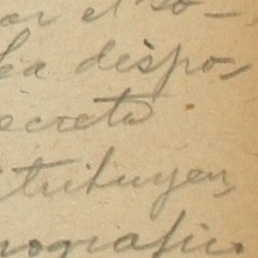 ar el so-
ea dispo-
ecreta.
tribuyen,
nografic